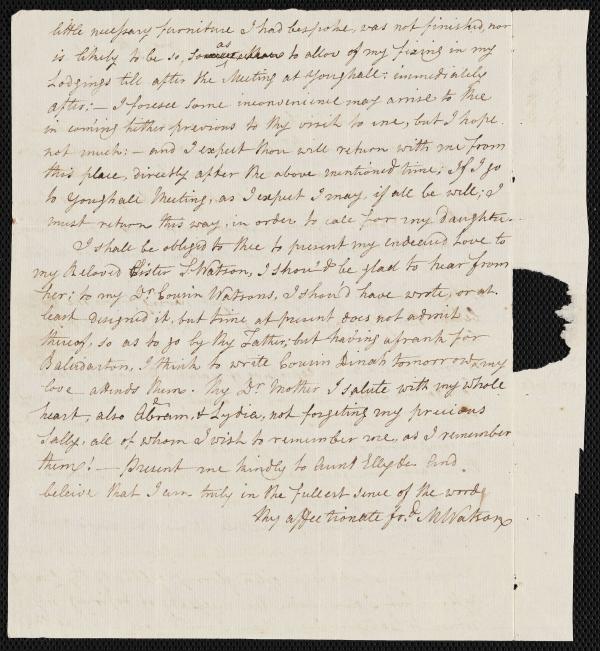 little necessary furniture I had bespoke, was not finished, nor
is likely to be so, so as to allow of my fixing in my
Lodgings till after the Meeting at Youghall: immediately
after:— I foresee some inconvenience may arise to thee
in coming hither previous to thy visit to me, but I hope
not much:— and I expect thou will return with me from
this place, directly after the above mentioned time; If I go
to Youghall Meeting, as I expect I may, if all be well; I
must return this way, in order to call for my daughter.
I shall be obliged to thee to present my endeared Love to
my Beloved Sister S: Watson, I shou'd be glad to hear from
her; to my Dr. Cousin Watsons, I should have wrote, or at
least designed it, but time at present does not admit
thereof, so as to go by thy Father; but having a frank for
Balidarton, I think to write Cousin Dinah tomorrow, my
love attends them. Thy Dr. Mother I salute with my whole
heart, also Abram, & Lydia, not forgeting my precious
Sally, all of whom I wish to remember me, as I remember
them!— Present me kindly to Aunt and
beleive that I am truly in the fullest sense of the word
thy affectionate frd. M Watson